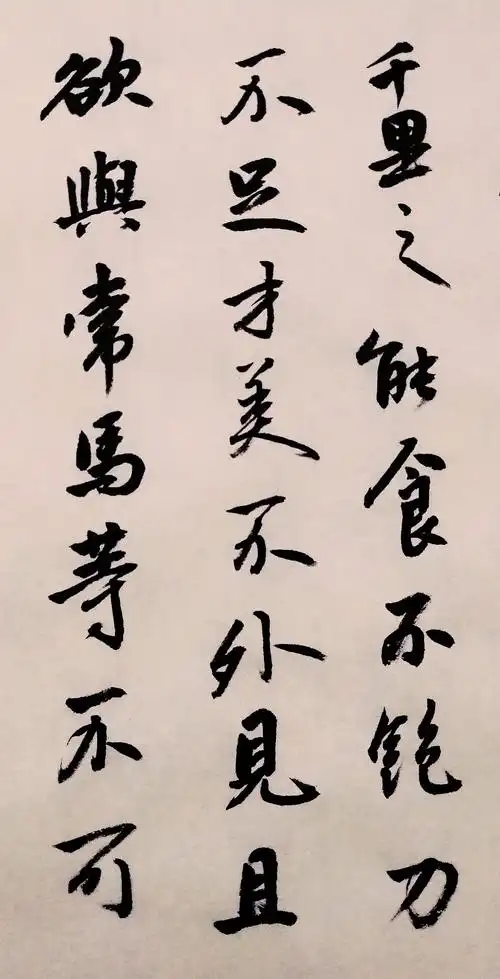 千里之能食不飽力
不足才美不外見且
欲與常馬等不可